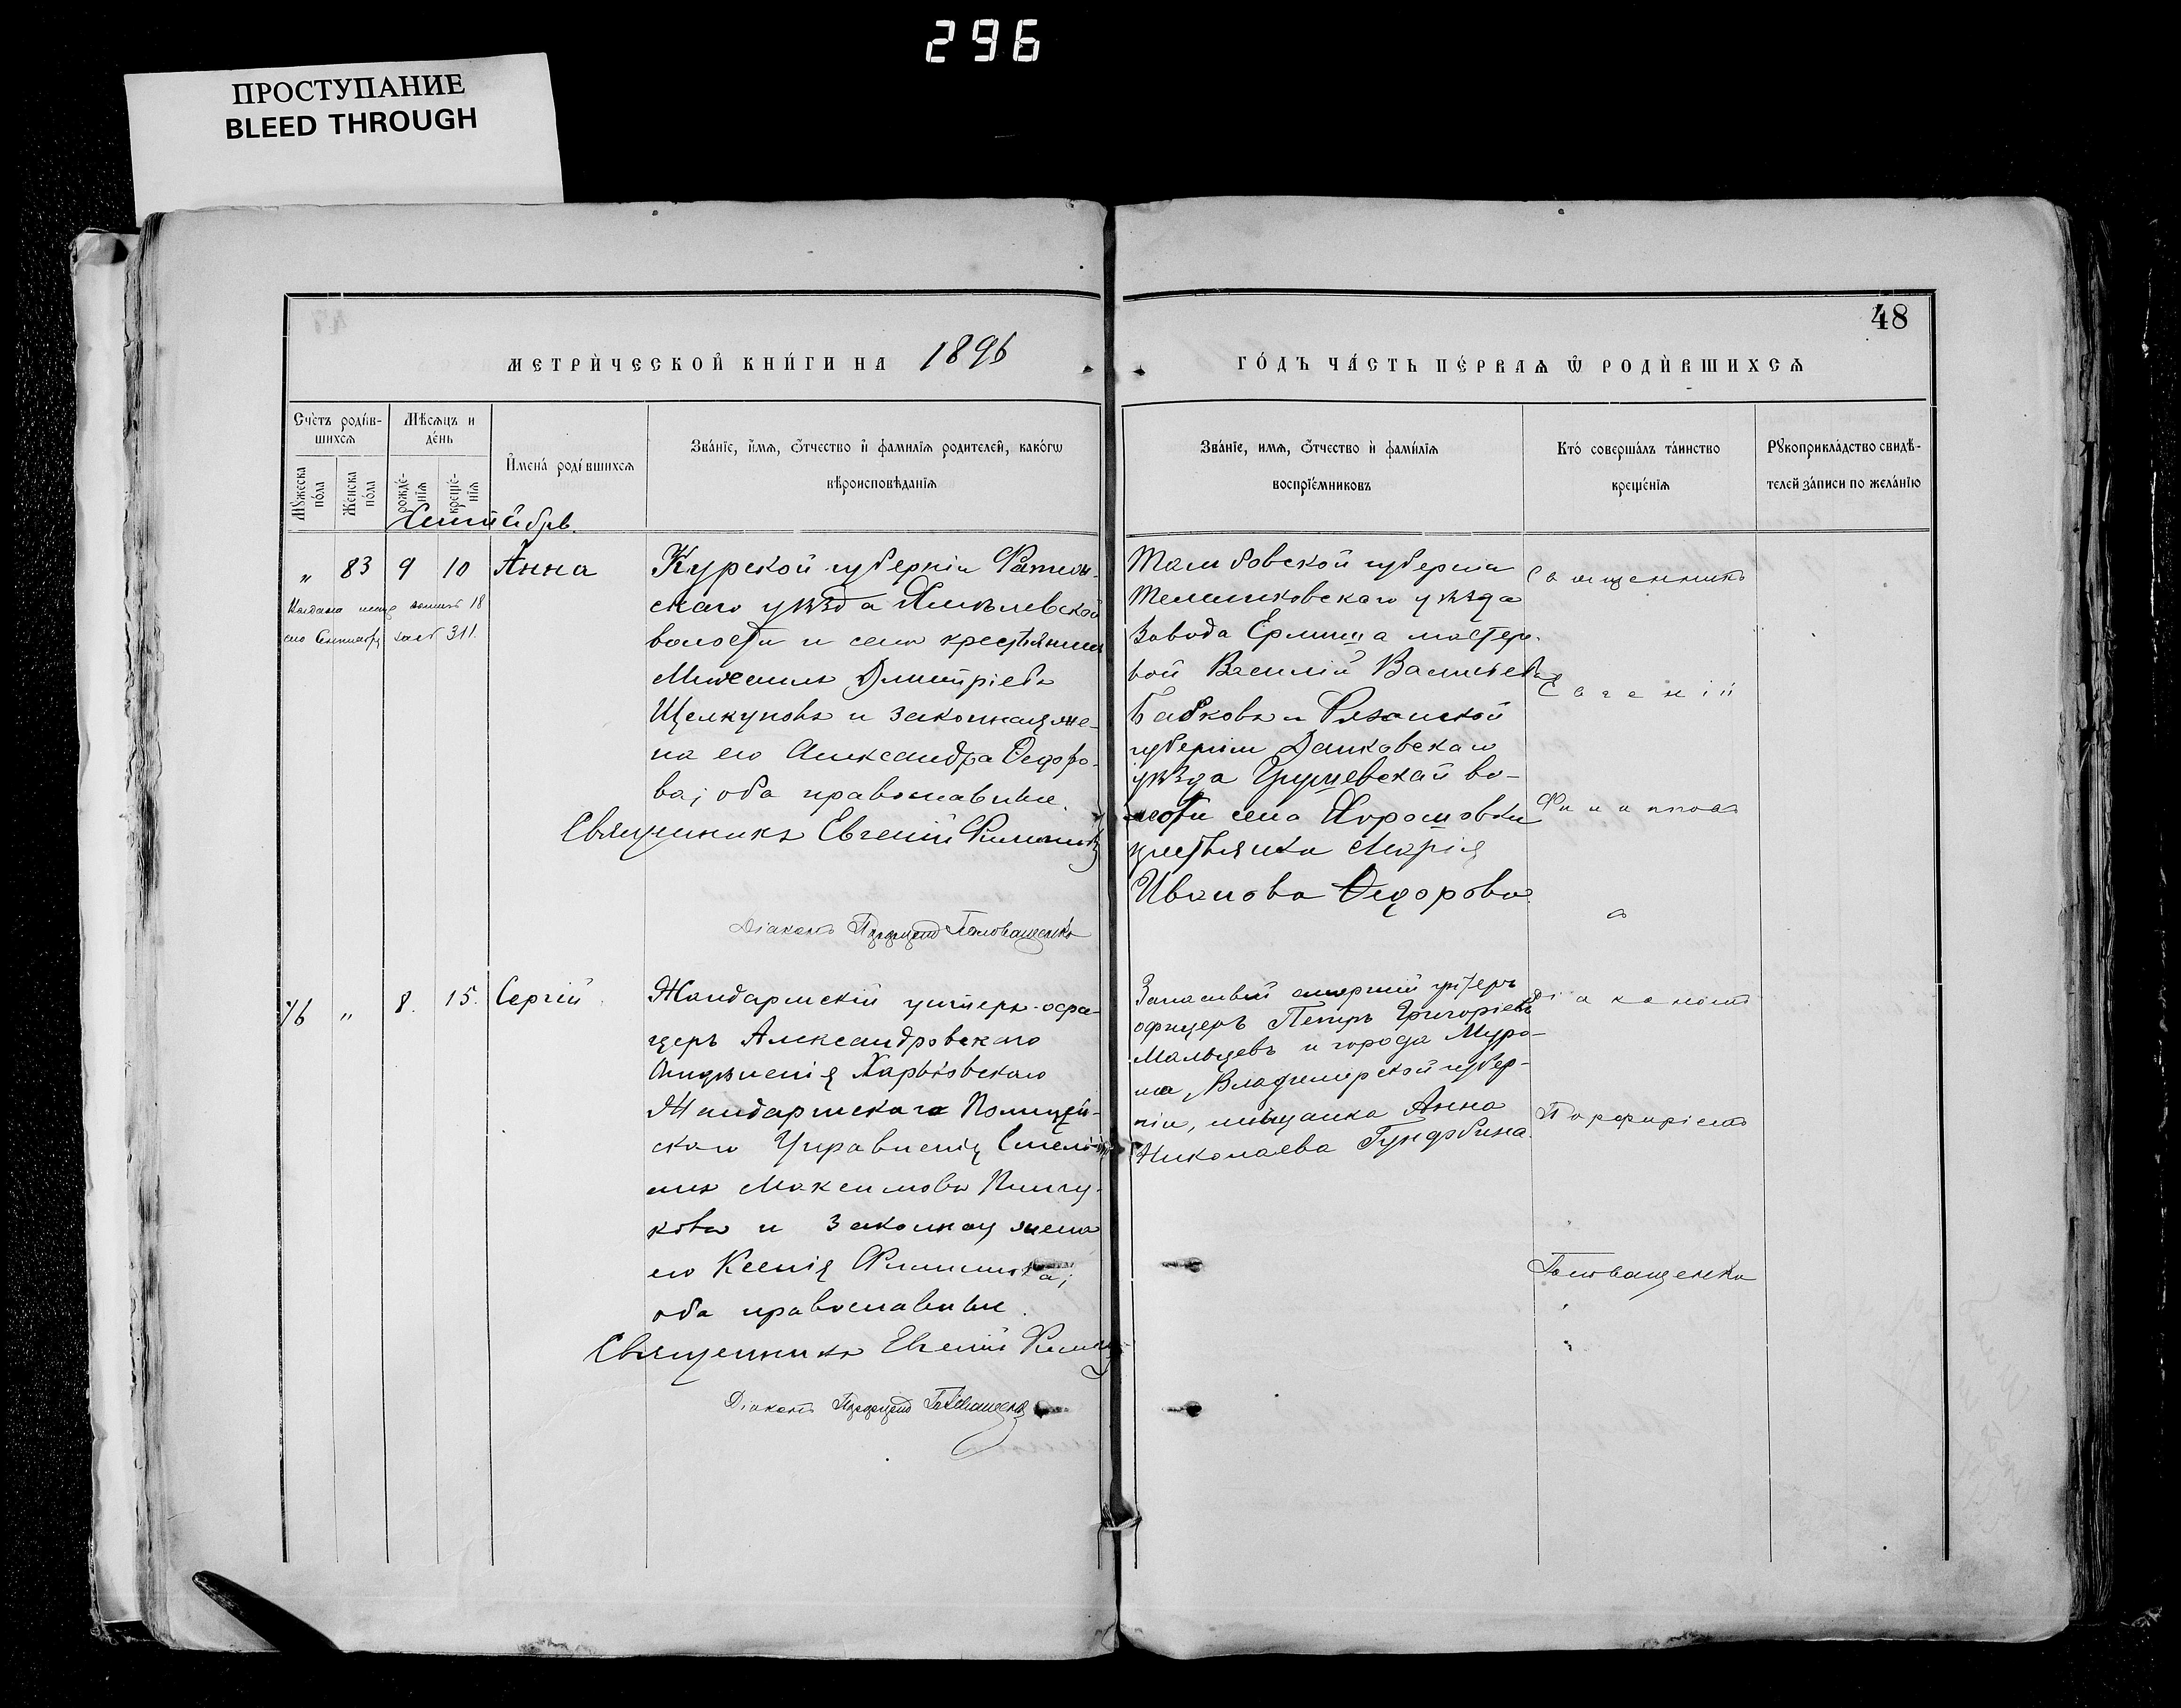 296
ПРОСТУПАНИЕ
BLEED THROUGH
48
МЕТРИ́ЧЕСКОЙ КНИ́ГИ НА 1896
ГО́ДЪ ЧА́СТЬ ПЕ́РВАѦ Ѽ РОДИ́ВШИХСѦ
Сче́тъ роди́в-
шихсѧ
Мѣсѧцъ и
де́нь
Мꙋ́жеска
по́ла
Же́нска
по́ла
рожде́-
нїѧ
креще́-
нїѧ
И҆мена́ роди́вшихсѧ
Зва́нїе, и҆́мѧ, ѻ҆́тчество и҆ фамилїѧ родителей, како́гѡ
вѣроисповѣданїѧ
Зва́нїе, имѧ, ѻ҆́тчество и҆ фами́лїѧ
воспрїе́мниковъ
Кто́ соверша́лъ та́инство
креще́нїѧ
Рꙋкоприкла́дство свидѣ́-
телей за́писи по жела́нїю
Сентябрь.
" 83 9 10 Анна
18
311.
Курской губерніи Фатеж-
скаго уѣзда
волости и села крестьянинъ
Дмитріевъ
Щелкуновъ и законная же-
на его Александра Ѳедоро-
ва; оба православные.
Священникъ Евгеній Филипповъ
Діаконъ Порфирій Головащенко
Тамбовской губерніи
Темниковскаго уѣзда
завода Ермиша мастеро-
вой Василій Васильевъ
Бабковъ и Рязанской
губерніи Данковскаго
уѣзда во-
лости села
крестьянка Марія
Иванова Ѳедорова
Священникъ
Евгеній
Филиппов
ъ
76 " 8. 15. Сергій
Жандармскій унтеръ-офи-
церъ Александровскаго
Отдѣленія Харьковскаго
Жандармскаго Полицей-
скаго Управленія
Максимовъ
ковъ и законная жена
его Ксенія Филиппова;
оба православные.
Священникъ Евгеній
Діаконъ Порфирій Головащенко
Запасный старшій унтеръ
офицеръ Петръ Григорьевъ
Мальцевъ и города Муро-
ма, Владимирской губер-
ніи, мѣщанка Анна
Николаева Гундобина.
Діакономъ
Порфиріемъ
Головащенко